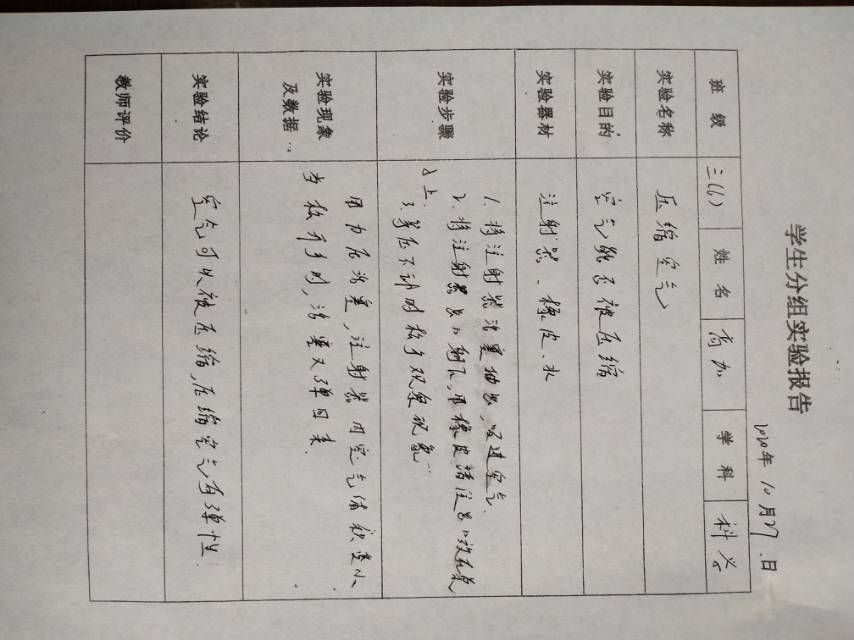 学生分组实验报告
2020年 10月27日
班 级 三(6) 姓 名 高加 学 科 科学
实验名称 压缩空气
实验目的 空气能否被压缩
实验器材 注射器、橡皮、水
实验步骤
1. 将注射器活塞抽出,吸进空气.
2. 将注射器出口朝下,用橡皮堵住出口放在桌
子上.
3. 等压不动时松手观察现象
实验现象
及数据
用力压活塞,注射器内空气体积变小
当松开手时,活塞又弹回来.
实验结论 空气可以被压缩,压缩空气有弹性.
教师评价